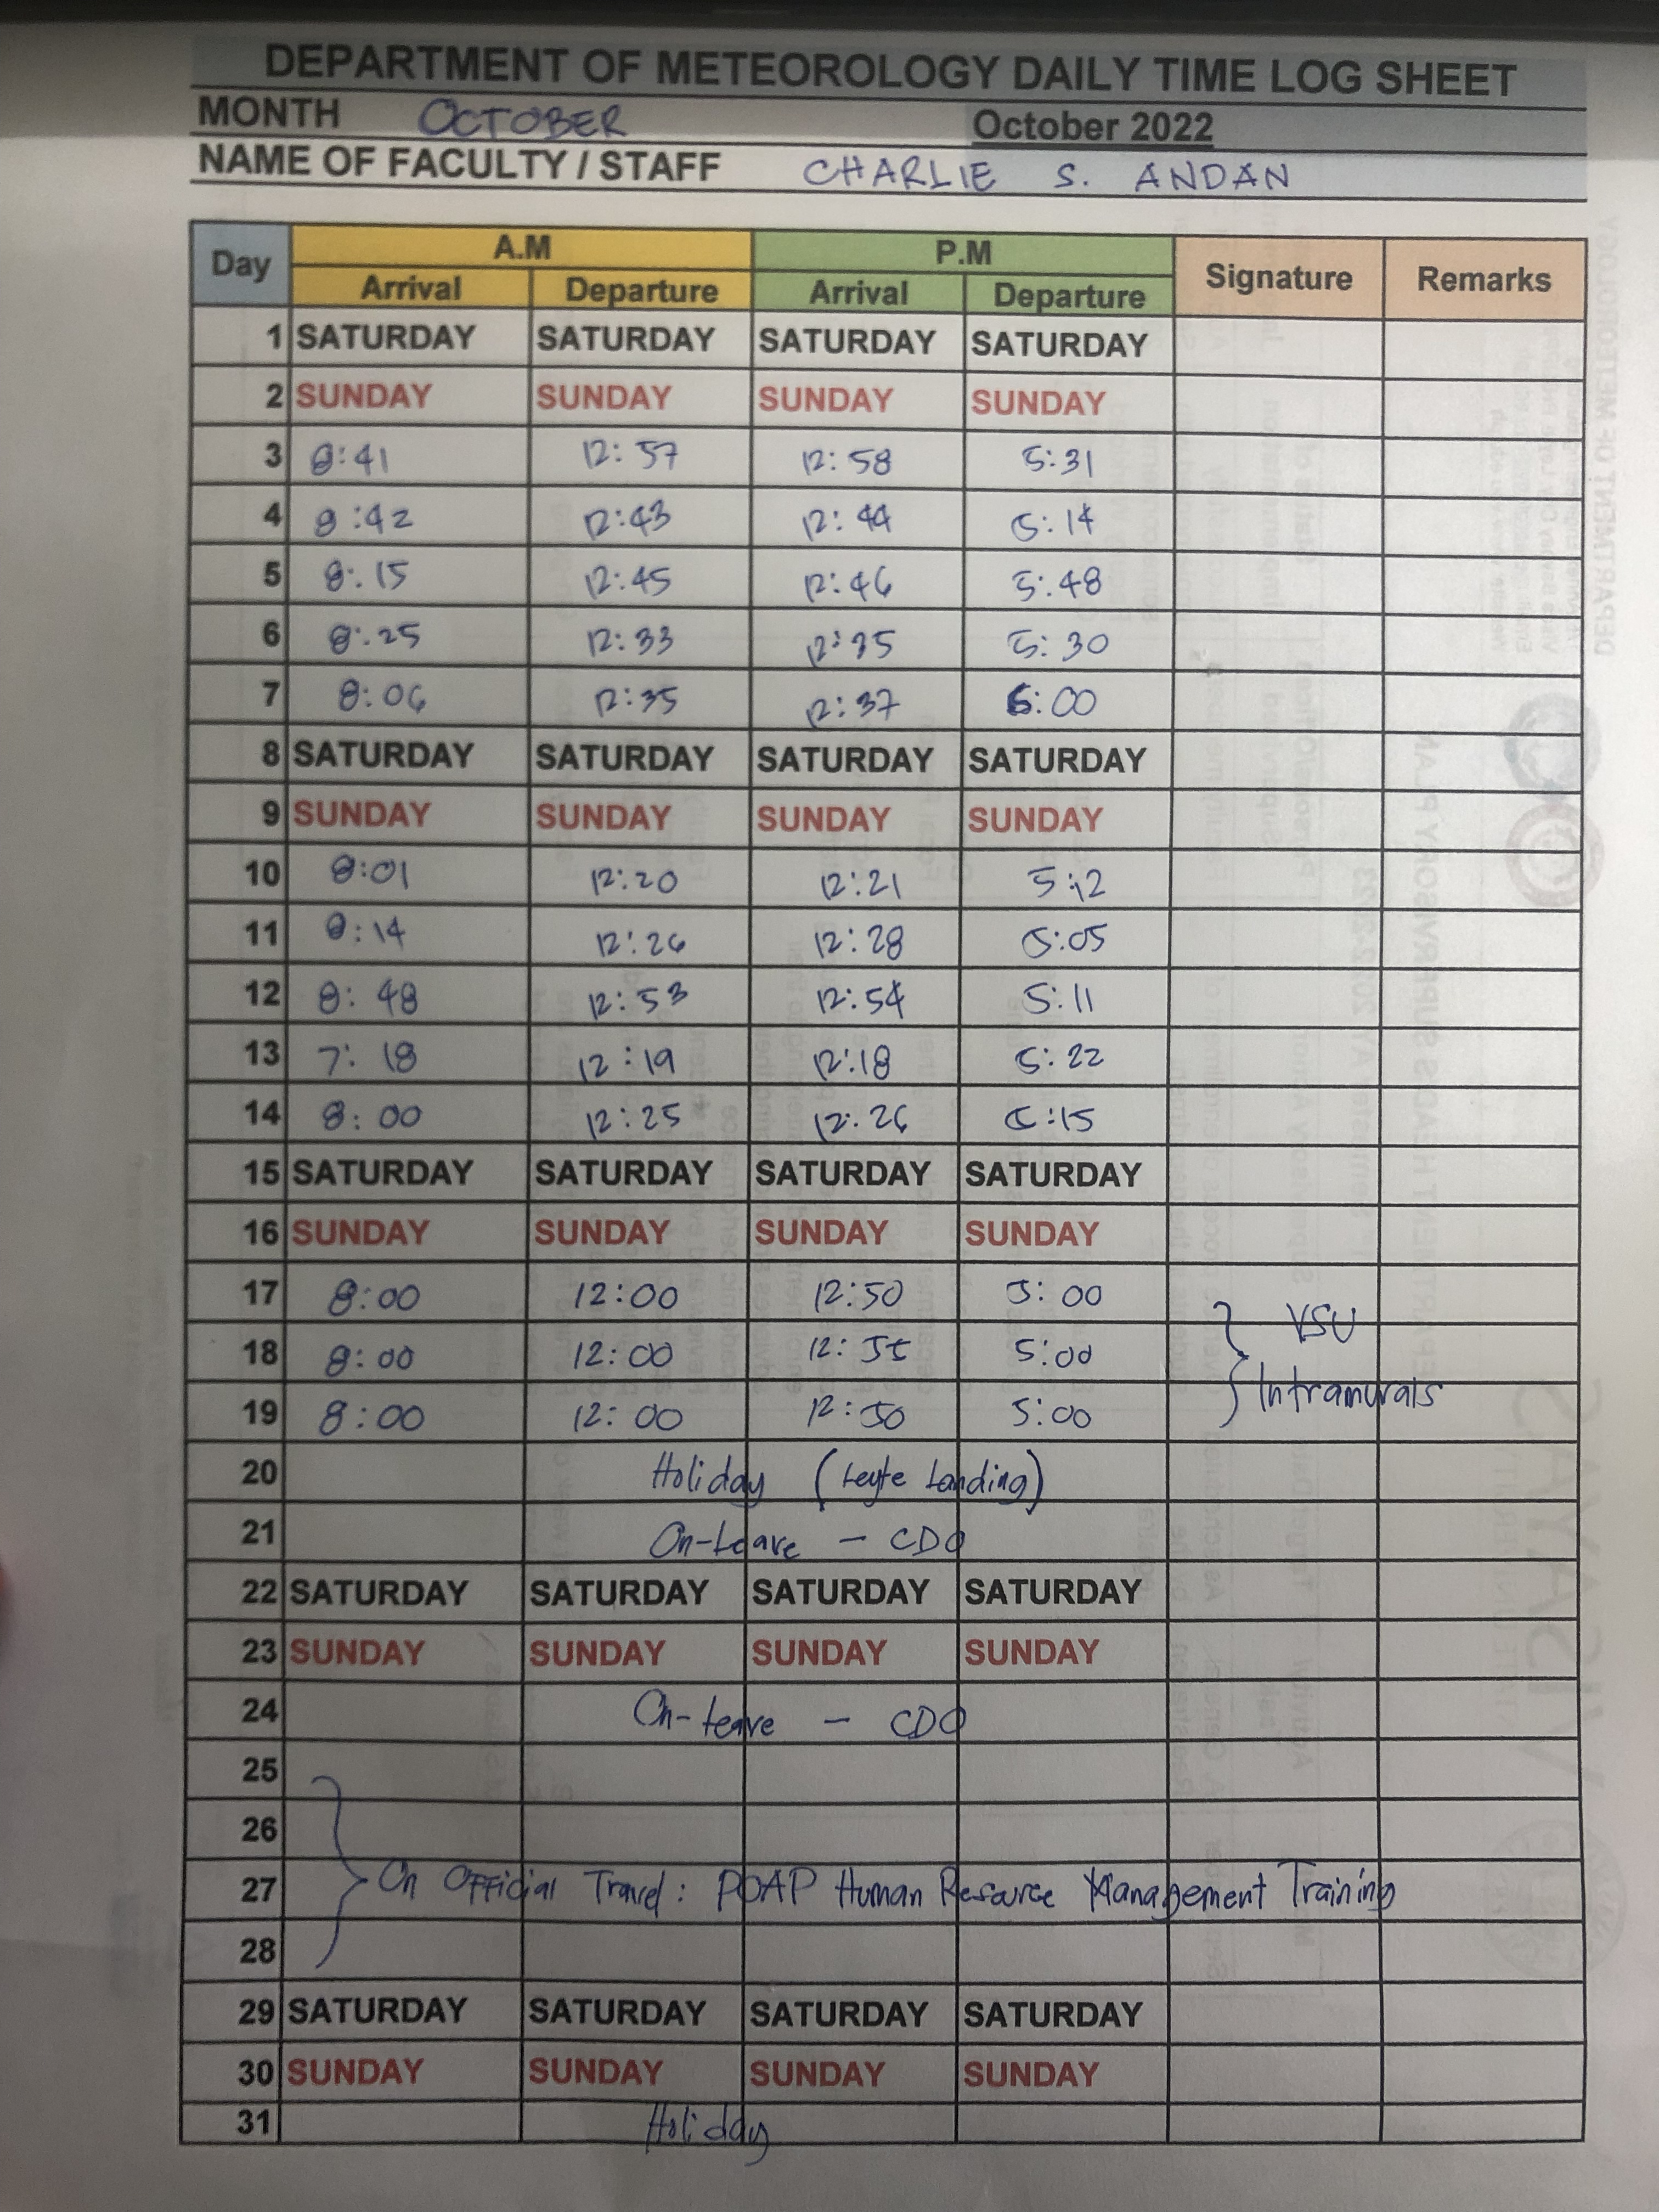 DEPARTMENT OF METEOROLOGY DAILY TIME LOG SHEET
MONTH OCTOBER October 2022
NAME OF FACULTY / STAFF CHARLIE S. ANDAN
Day A.M P.M Signature Remarks
Arrival Departure Arrival Departure
1 SATURDAY SATURDAY SATURDAY SATURDAY
2 SUNDAY SUNDAY SUNDAY SUNDAY
3 8:41 12:57 12:58 5:31
4 8:42 12:43 12:44 5:14
5 8:15 12:45 12:46 5:48
6 8:25 12:33 12:35 5:30
7 8:06 12:35 12:37 5:00
8 SATURDAY SATURDAY SATURDAY SATURDAY
9 SUNDAY SUNDAY SUNDAY SUNDAY
10 8:01 12:20 12:21 5:12
11 8:14 12:26 12:28 5:05
12 8:48 12:53 12:54 5:11
13 7:18 12:19 12:18 5:22
14 8:00 12:25 12:26 5:15
15 SATURDAY SATURDAY SATURDAY SATURDAY
16 SUNDAY SUNDAY SUNDAY SUNDAY
17 8:00 12:00 12:50 5:00
18 8:00 12:00 12:55 5:00 VSU
19 8:00 12:00 12:50 5:00 Intramurals
20 Holiday (Leyte Landing)
21 On-Leave - CDO
22 SATURDAY SATURDAY SATURDAY SATURDAY
23 SUNDAY SUNDAY SUNDAY SUNDAY
24 On-Leave - CDO
25
26
27 On Official Travel: POAP Human Resource Management Training
28
29 SATURDAY SATURDAY SATURDAY SATURDAY
30 SUNDAY SUNDAY SUNDAY SUNDAY
31 Holiday